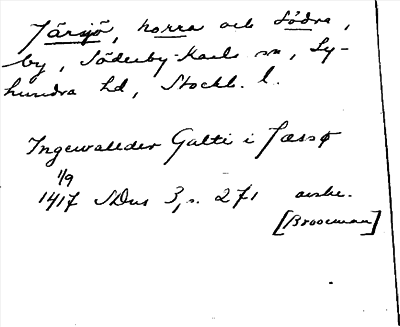 Järsjö, norra och Södra,
by, Söderby-Karls sn, Ly-
hundra hd, Stockh. l.
Ingewallder Galti i Jæssø
1/9
1417 SDns 3, s. 271 avskr.
[Brooman]